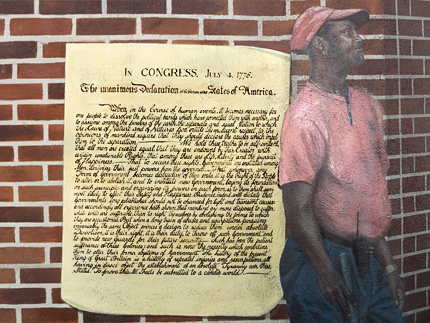 In CONGRESS, July 4, 1776.
The unanimous Declaration of the thirteen united States of America.
When, in the Course of human events, it becomes necessary for
one people to dissolve the political bands which have connected them with another, and
to assume among the powers of the earth, the separate and equal station to which
the Laws of Nature and of Nature's God entitle them, a decent respect to the
opinions of mankind requires that they should declare the causes which impel
them to the separation. We hold these truths to be self-evident,
that all men are created equal, that they are endowed by their Creator with
certain unalienable Rights, that among these are Life, Liberty and the pursuit
of Happiness.— That to secure these rights, Governments are instituted among
Men, deriving their just powers from the consent That whenever any
Form of Government becomes destructive of these ends, it is the Right of the People
to alter or to abolish it, and to institute new Government, laying its foundation
on such principles and organizing its powers in such form, as to them shall seem
most likely to effect their Safety and Happiness. Prudence, indeed, will dictate that
Governments long established should not be changed for light and transient causes;
and accordingly all experience hath shewn, that mankind are more disposed to suffer,
while evils are sufferable, than to right themselves by abolishing the forms to which
they are accustomed. But when a long train of abuses and usurpations, pursuing
invariably the same Object evinces a design to reduce them under absolute
Despotism, it is their right, it is their duty, to throw off such Government, and
to provide new Guards for their future security.— Such has been the patient
sufferance of these Colonies; and such is now the necessity which constrains
them to alter their former Systems of Government. The history of the present
King of Great Britain is a history of repeated injuries and usurpations, all
having in direct object the establishment of an absolute Tyranny over these
States. To prove this, let Facts be submitted to a candid world.